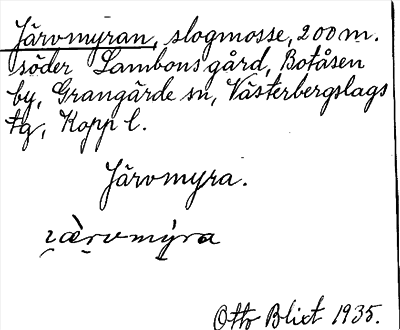 Järvmyran, slogmosse, 200 m.
söder Lambons gård, Botåsen
by, Grangärde sn, Västerbergslags
tg, Kopp l.
Järvmyra.
Otto Blixt 1935.